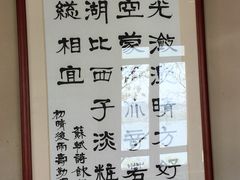 光瀲灔晴方好
空蒙亦若
湖比西子淡粧
總相宜
蘇軾詩飲
初晴後雨壽勤